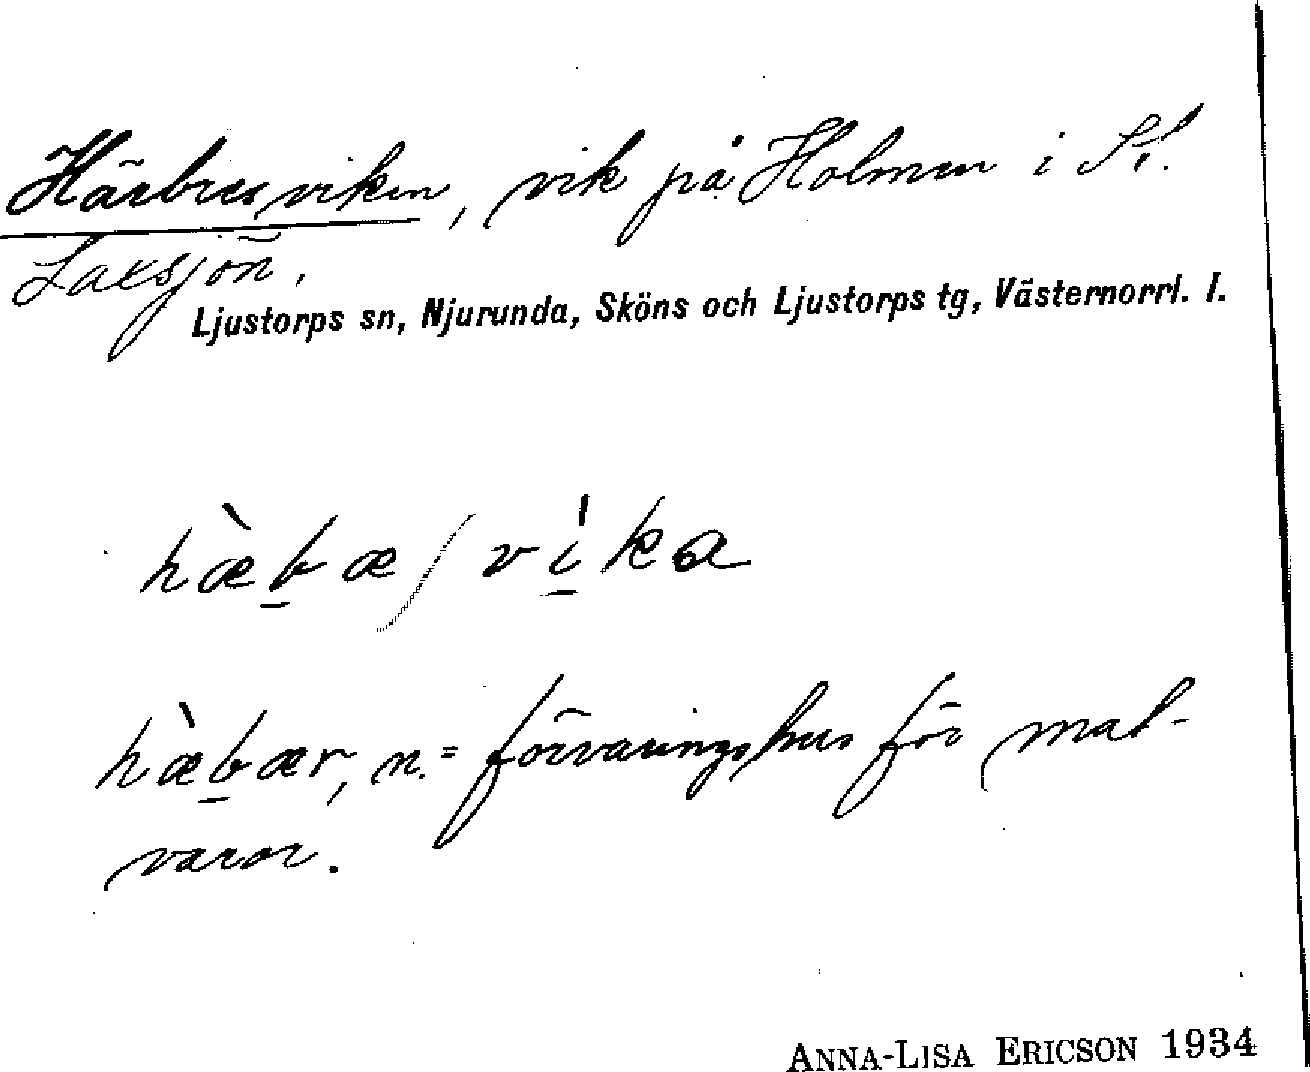 Härbresviken, vik på Holmen i St.
Laxsjön.
Ljustorps sn, Njurunda, Sköns och Ljustorps tg, Västernorrl. l.
hæ̀bæ/vi̍ka
hæ̀bær, n. = förvaringshus för mat-
varor.
ANNA-LISA ERICSON 1934